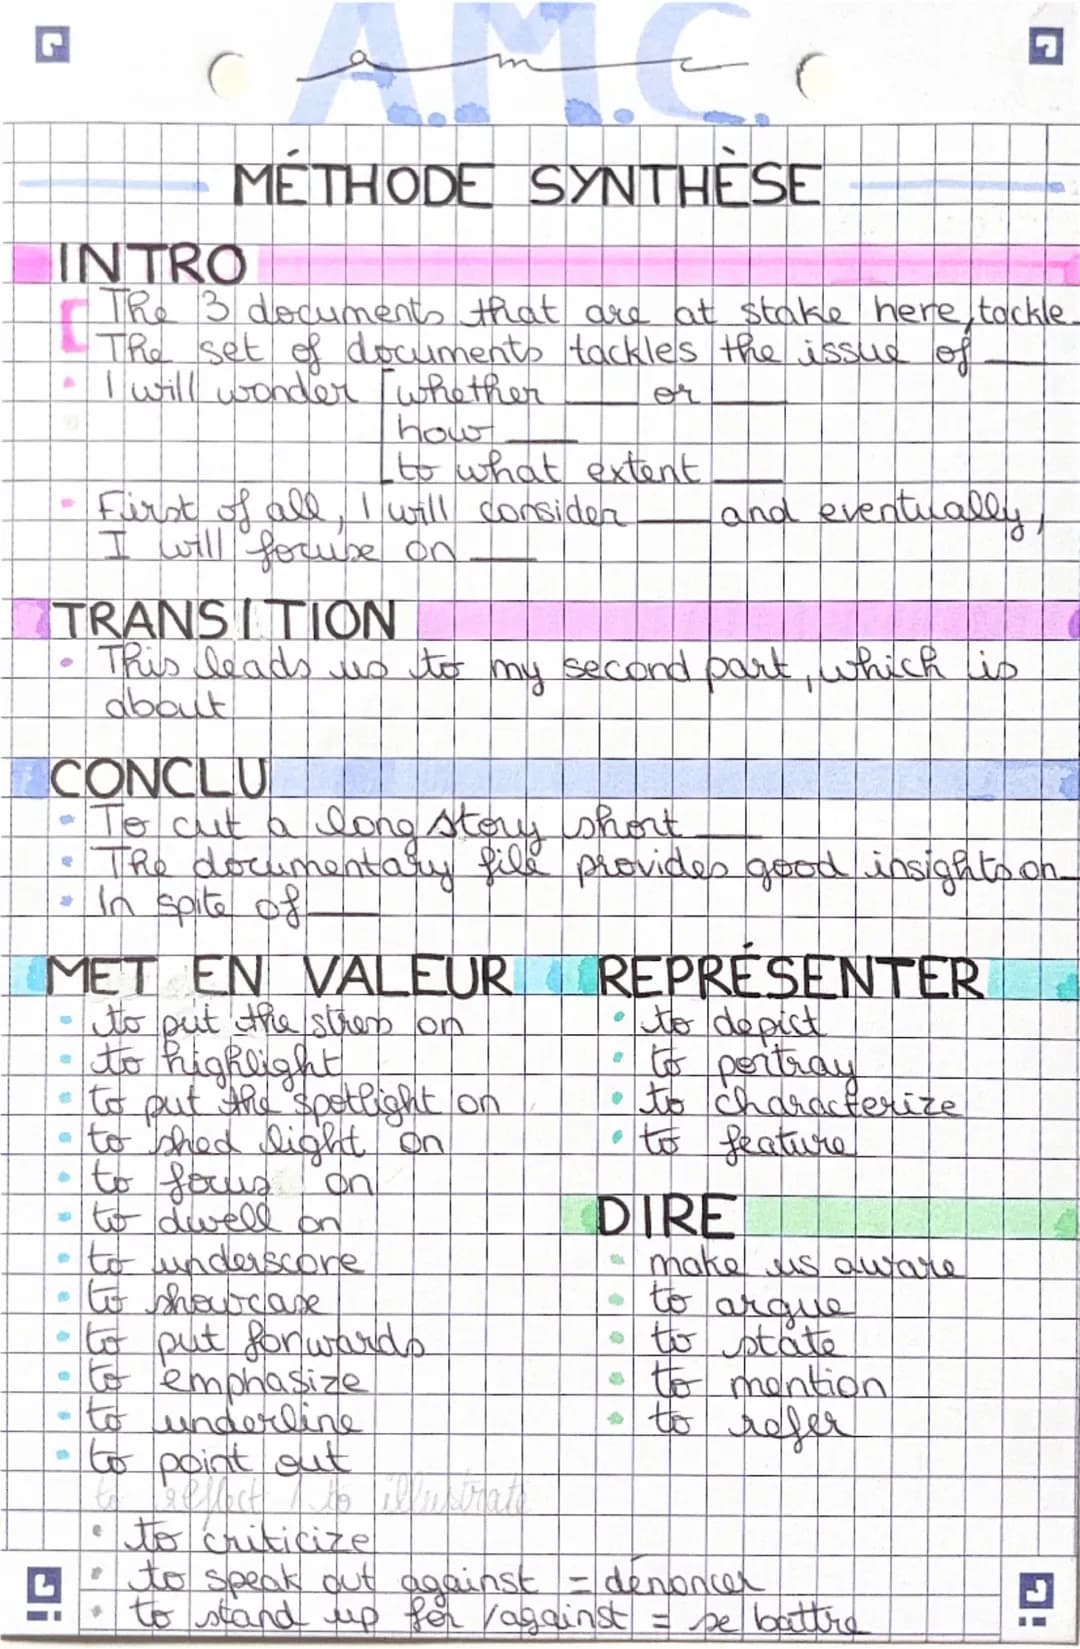 A.M.C.
a m c
MÉTHODE SYNTHÈSE
INTRO
The 3 documents that are at stake here, tackle
The set of documents tackles the issue of ___
• I will wonder [whether ___ or ___
how ___
to what extent ___
• First of all, I will consider ___ and eventually,
I will focuse on ___
TRANSITION
• This leads us to my second part, which is
about
CONCLU
• To cut a long story short ___
• The documentary file provides good insights on
• In spite of ___
MET EN VALEUR
• to put the stress on
• to highlight
• to put the spotlight on
• to shed light on
• to focus on
• to dwell on
• to underscore
• to showcase
• to put forwards
• to emphasize
• to underline
• to point out
to reflect / to illustrate
• to criticize
• to speak out against = dénoncer
• to stand up for / against = se battre
REPRÉSENTER
• to depict
• to portray
• to characterize
• to feature
DIRE
• make us aware
• to argue
• to state
• to mention
• to refer